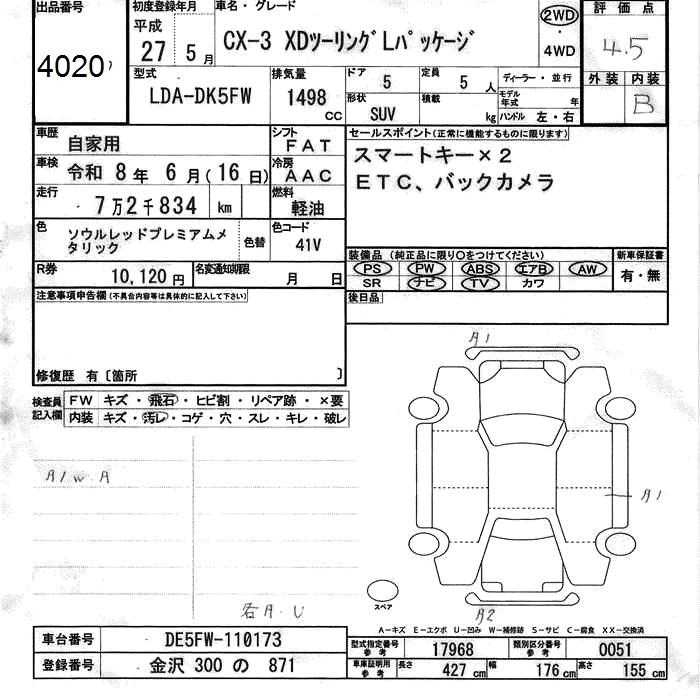 出品番号
4020
初度登録年月
平成
27 5月
車名・グレード
CX-3 XDツーリングLパッケージ
2WD
・
4WD
評価点
4.5
外装 内装
B
型式
LDA-DK5FW
排気量
1498
CC
ドア
5
定員
5人
形状
SUV
積載
kg
ディーラー・並行
モデル年式 年
ハンドル 左・右
車歴
自家用
シフト
FAT
車検
令和 8年 6月(16日)
冷房
AAC
走行
7万2千834 km
燃料
軽油
色
ソウルレッドプレミアムメ
タリック
色替
色コード
41V
R券
10,120円
名変通知期限
月 日
セールスポイント(正常に機能するものに限ります)
スマートキー×2
ETC、バックカメラ
装備品(純正品に限り○をつけてください)
PS PW ABS エアB AW
SR ナビ TV カワ
新車保証書
有・無
後日品
注意事項申告欄(不具合内容等は具体的に記入して下さい)
修復歴 有〔箇所 〕
検査員
記入欄
FW キズ・飛石・ヒビ割・リペア跡・×要
内装 キズ・汚レ・コゲ・穴・スレ・キレ・破レ
A1
A/W A
A1
各A・U
スペア
A2
A-キズ E-エクボ U-凹み W-補修跡 S-サビ C-腐食 XX-交換済
車台番号
DE5FW-110173
登録番号
金沢 300 の 871
型式指定番号
参考
17968
類別区分番号
参考
0051
車庫証明用
参考
長さ
427cm
幅
176cm
高さ
155cm